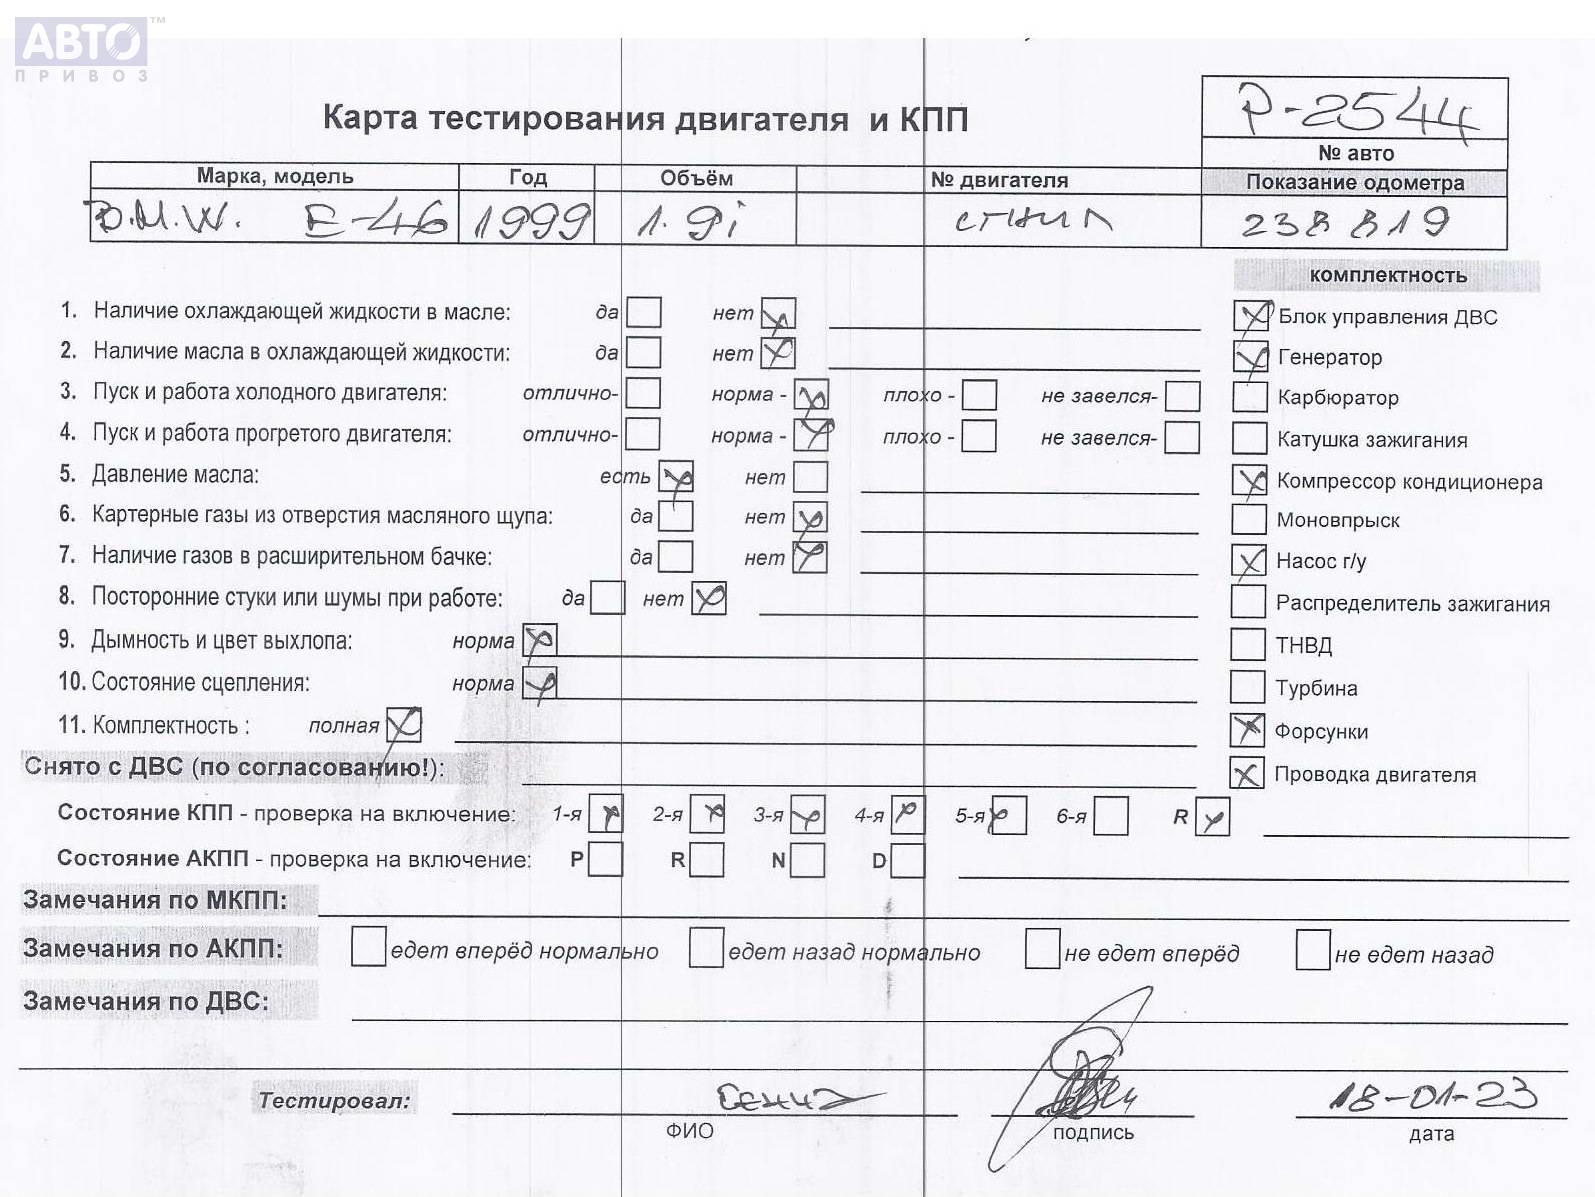 АВТО™
ПРИВОЗ
Карта тестирования двигателя и КПП
Р-2544
№ авто
Марка, модель Год Объём № двигателя Показание одометра
B.M.W. E-46 1999 1.9i сгнил 238 819
комплектность
1. Наличие охлаждающей жидкости в масле: да нет
Блок управления ДВС
2. Наличие масла в охлаждающей жидкости: да нет
Генератор
3. Пуск и работа холодного двигателя: отлично- норма - плохо - не завелся-
Карбюратор
4. Пуск и работа прогретого двигателя: отлично- норма - плохо - не завелся-
Катушка зажигания
5. Давление масла: есть нет
Компрессор кондиционера
6. Картерные газы из отверстия масляного щупа: да нет
Моновпрыск
7. Наличие газов в расширительном бачке: да нет
Насос г/у
8. Посторонние стуки или шумы при работе: да нет
Распределитель зажигания
9. Дымность и цвет выхлопа: норма
ТНВД
10. Состояние сцепления: норма
Турбина
11. Комплектность : полная
Форсунки
Снято с ДВС (по согласованию!):
Проводка двигателя
Состояние КПП - проверка на включение: 1-я 2-я 3-я 4-я 5-я 6-я R
Состояние АКПП - проверка на включение: P R N D
Замечания по МКПП:
Замечания по АКПП: едет вперёд нормально едет назад нормально не едет вперёд не едет назад
Замечания по ДВС:
Тестировал: 18-01-23
ФИО подпись дата